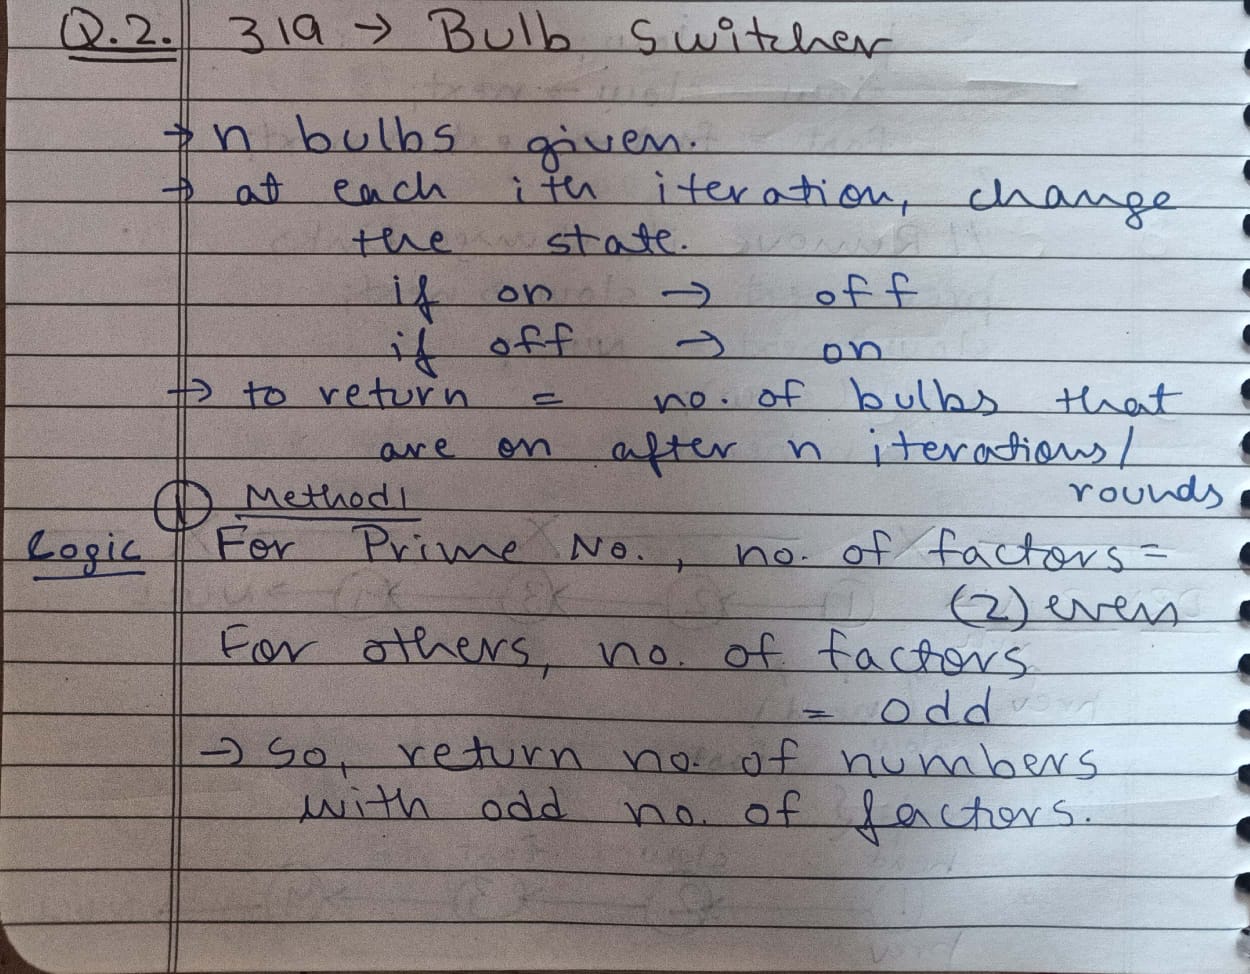 Q.2. 319 → Bulb Switcher
→ n bulbs given.
→ at each ith iteration, change
the state.
if on → off
if off → on
→ to return = no. of bulbs that
are on after n iterations/
rounds
① Method1
Logic For Prime No., no. of factors =
(2) even
For others, no. of factors
= odd
→ So, return no. of numbers
with odd no. of factors.